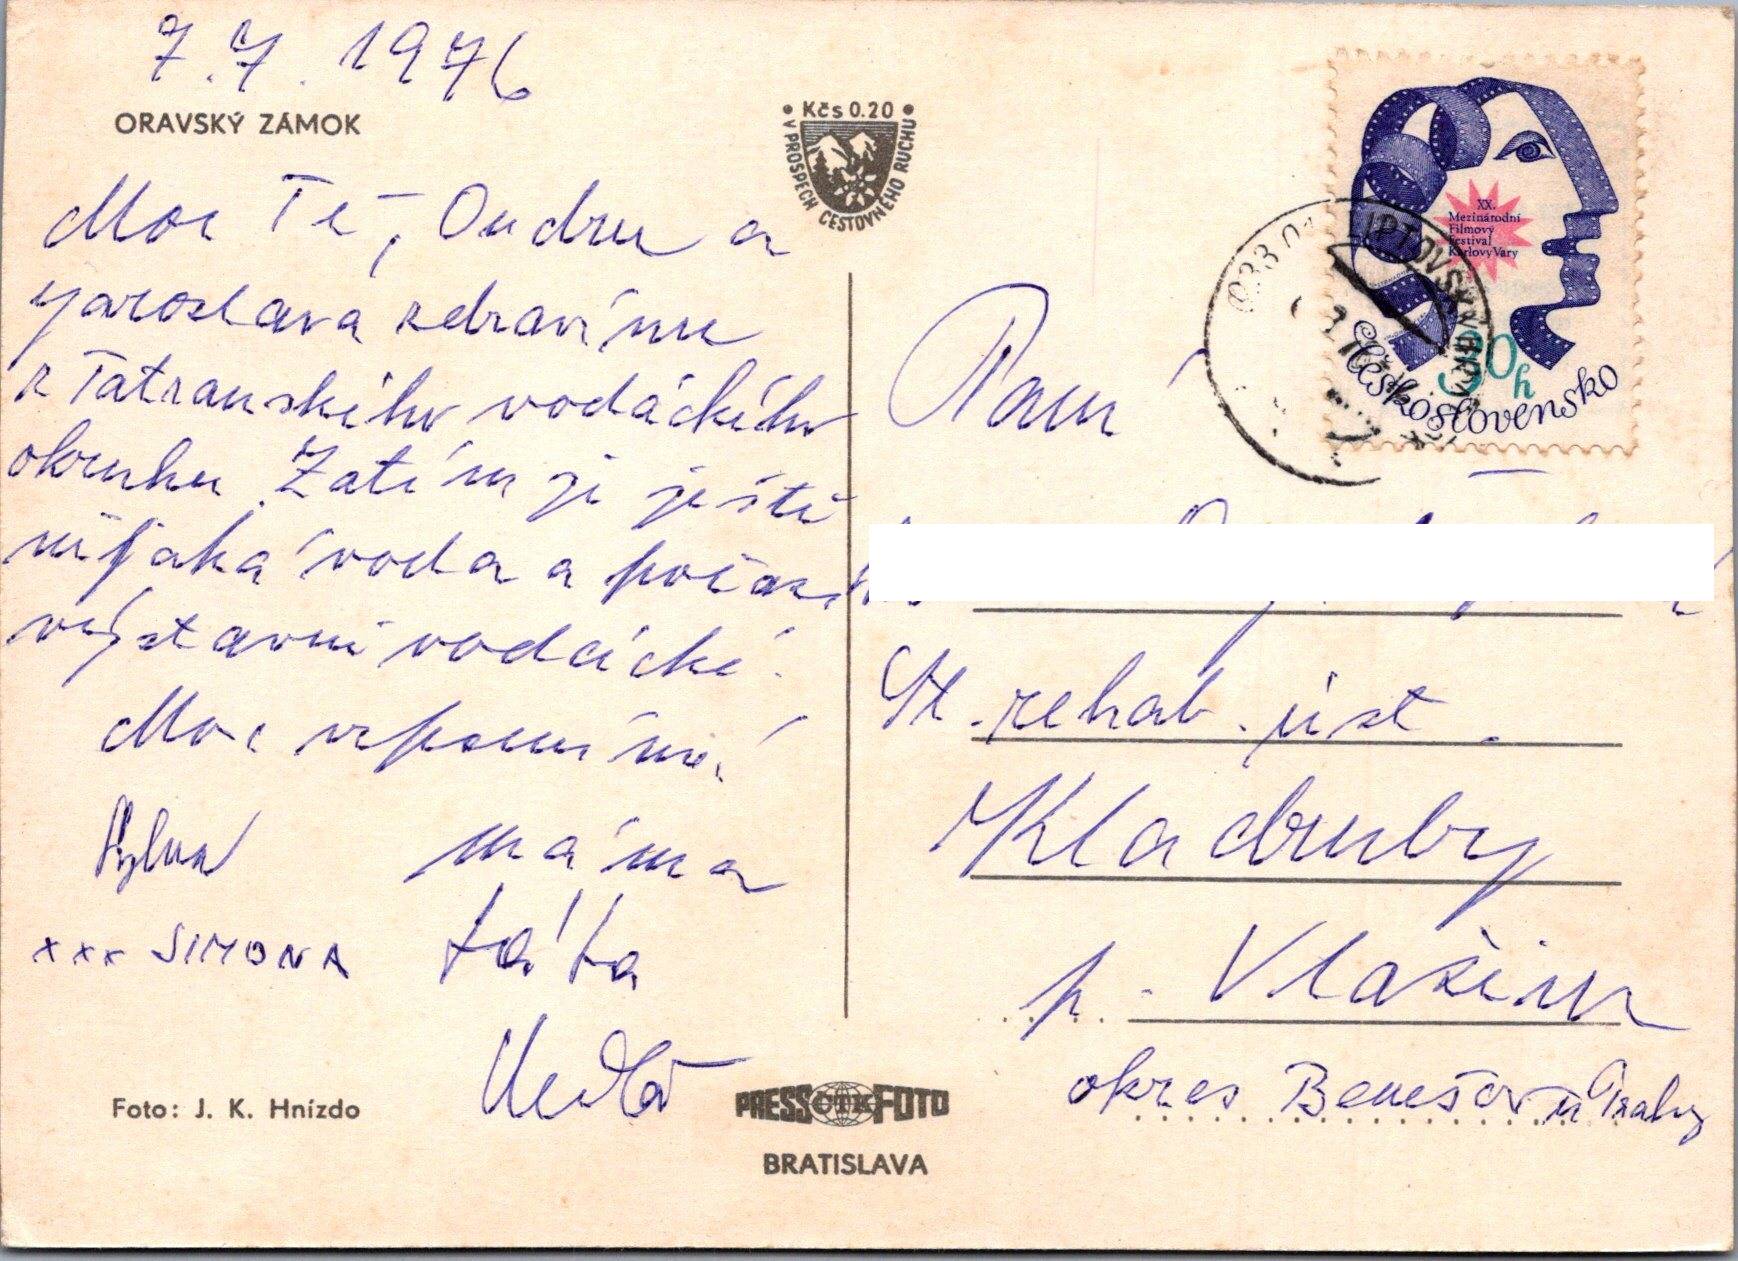 7.7.1976
ORAVSKÝ ZÁMOK
Kčs 0.20
V PROSPECH CESTOVNÉHO RUCHU
Moc Tě, Ondru a
Jaroslava zdravíme
z Tatranského vodáckého
okruhu. Zatím je ještě
nějaká voda a počasí
výstavně vodácké.
Moc vzpomíná
máma
xxx SIMONA táta
Foto: J. K. Hnízdo
PRESS ČTK FOTO
BRATISLAVA
XX.
Mezinárodní
Filmový
Festival
Karlovy Vary
30h
Československo
033 01 LIPTOVSKÝ
Paní
St. rehab. úst.
Kladruby
p. Vlašim
okres Benešov u Prahy